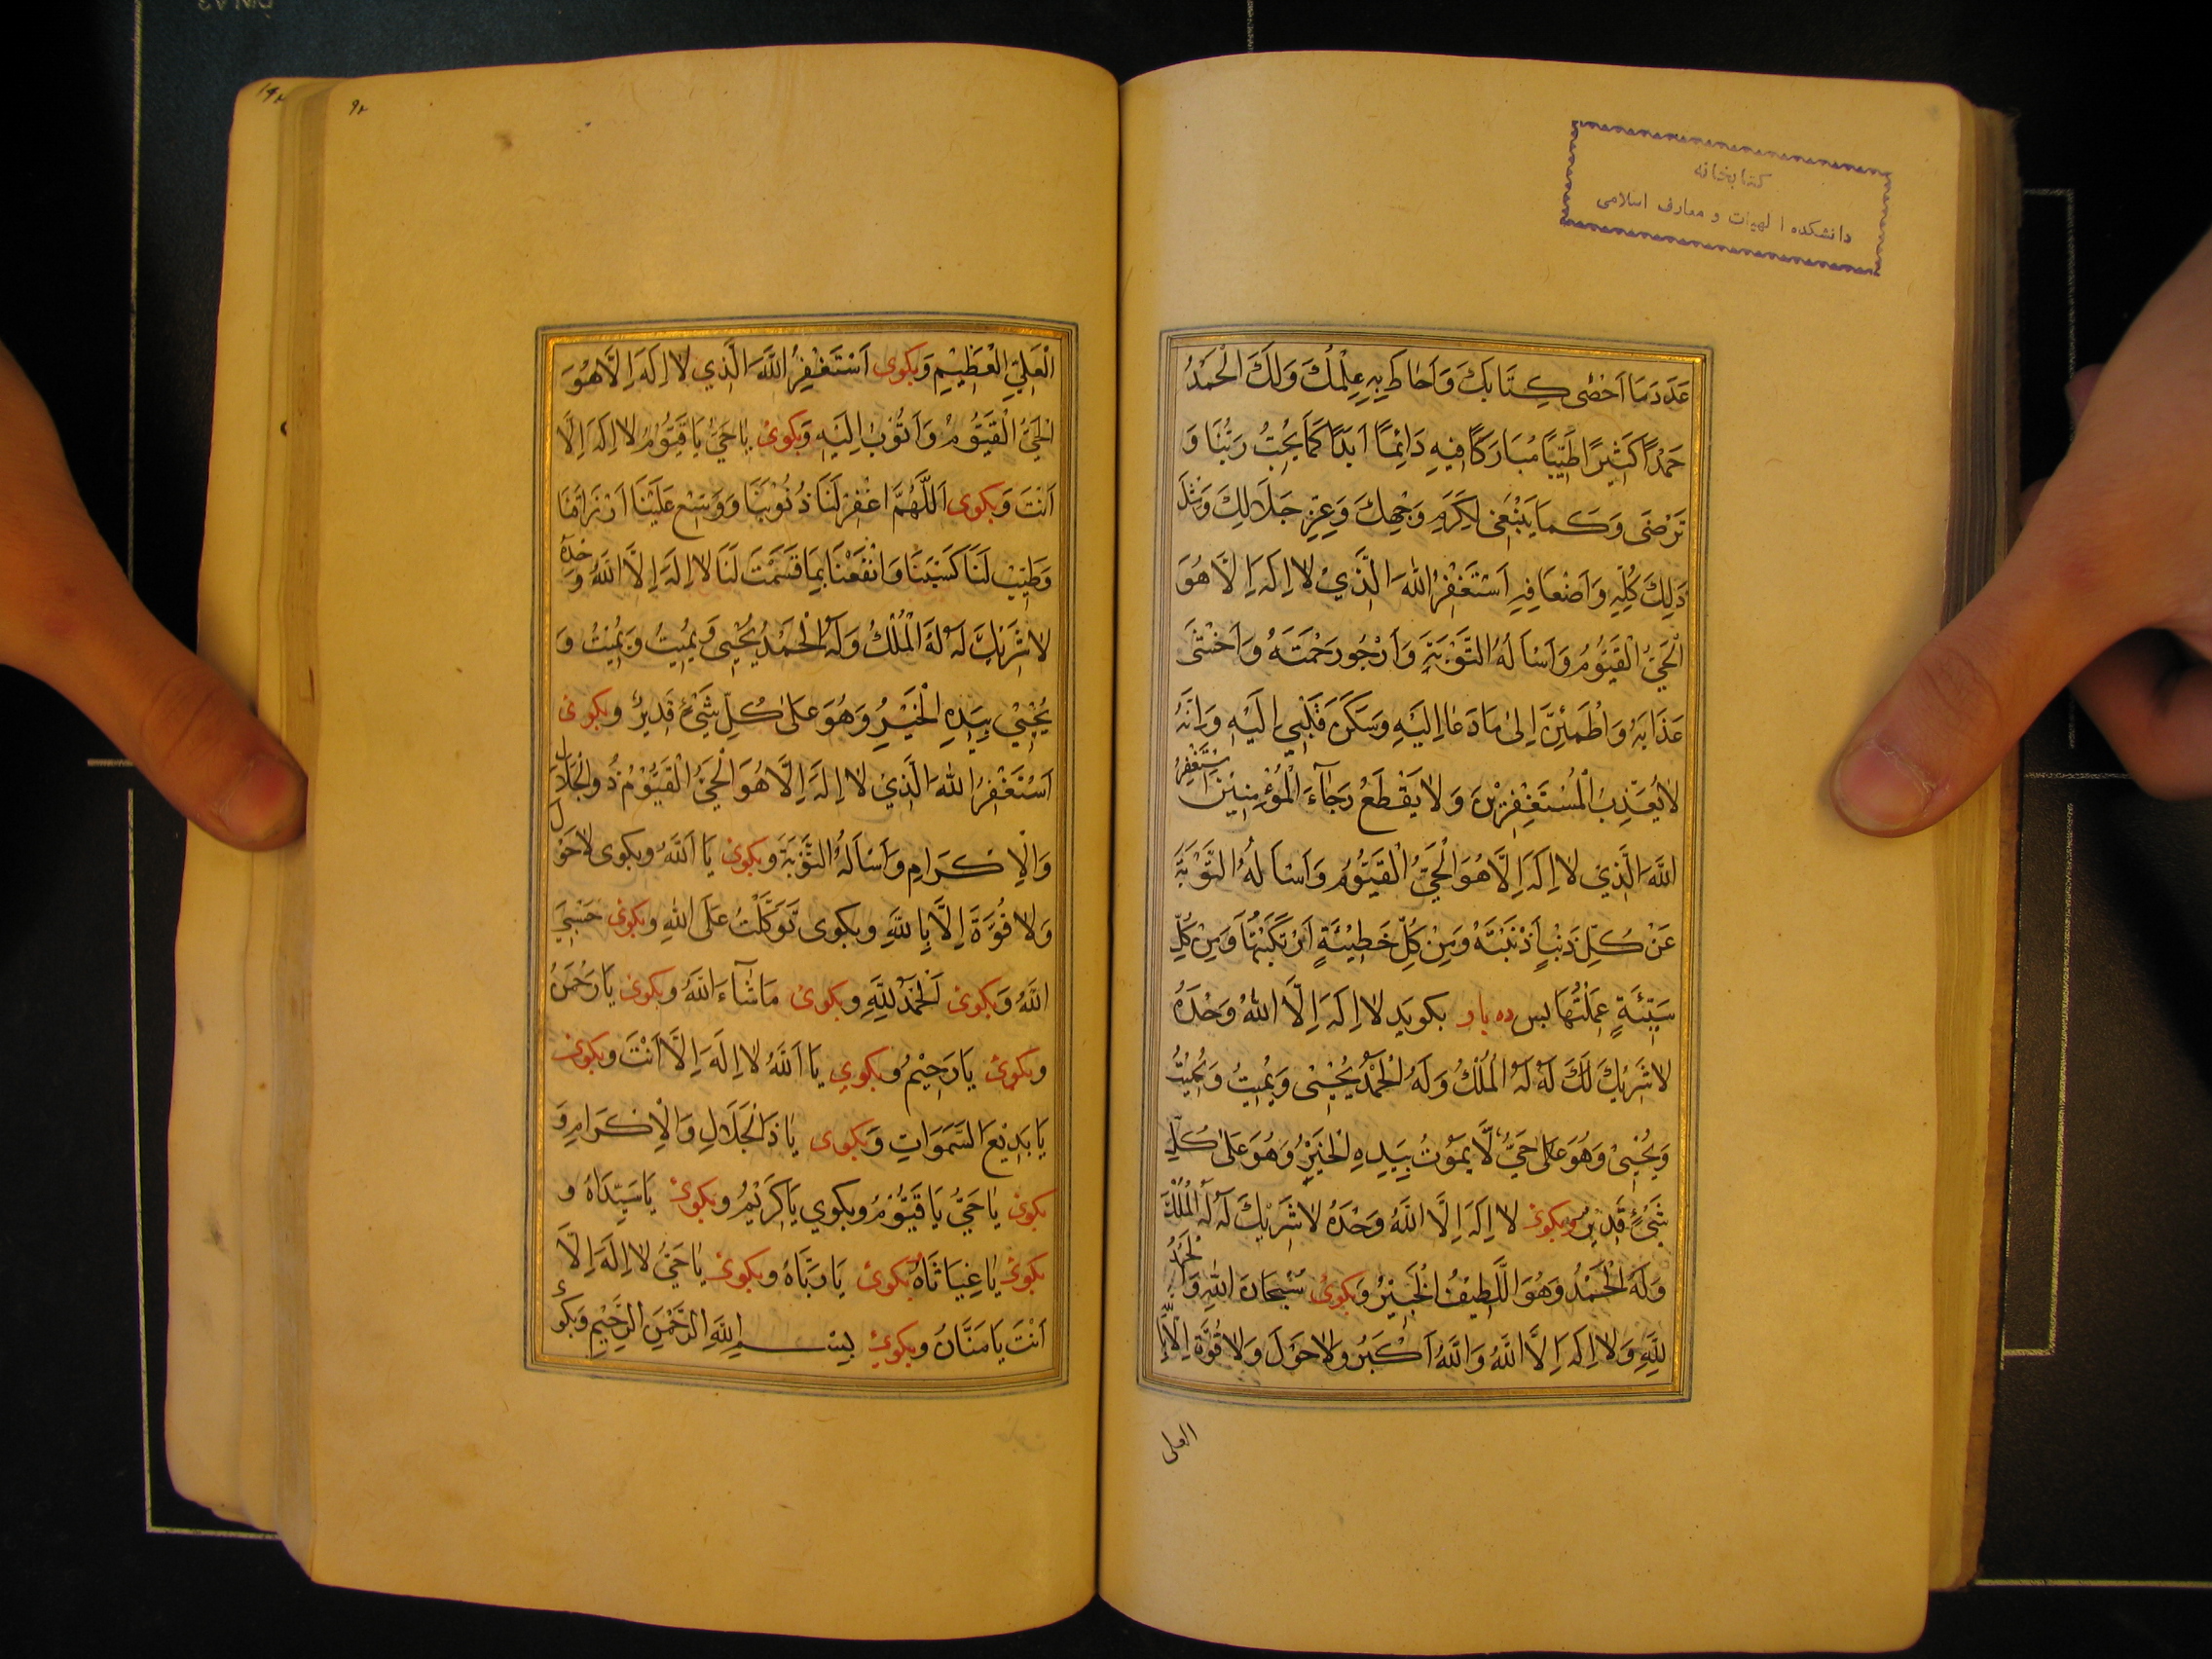 کتابخانه
دانشکده الهیات و معارف اسلامی
عَدَدَ مَا اَحْصٰی کِتَابَكَ وَاَحَاطَ بِهِ عِلْمُكَ وَلَكَ الْحَمْدُ
حَمْدًا كَثِيرًا طَيِّبًا مُبَارَكًا فِيهِ دَائِمًا اَبَدًا كَمَا يُحِبُّ رَبُّنَا وَ
تَرْضٰى وَكَمَا يَنْبَغِى لِكَرَمِ وَجْهِكَ وَعِزِّ جَلَالِكَ وَمِثْلَ
ذٰلِكَ كُلِّهِ وَاَضْعَافِهِ اَسْتَغْفِرُ اللهَ الَّذِيْ لَا اِلٰهَ اِلَّا هُوَ
الْحَيُّ الْقَيُّوْمُ وَاَسْاَلُهُ التَّوْبَةَ وَاَرْجُو رَحْمَتَهُ وَاَخْشٰى
عَذَابَهُ وَاطْمَئِنَّ اِلٰى مَا دَعَا اِلَيْهِ وَسَكَنَ قَلْبِي اِلَيْهِ وَاِنَّهُ
لَا يُعَذِّبُ الْمُسْتَغْفِرِيْنَ وَلَا يَقْطَعُ رَجَاءَ الْمُؤْمِنِيْنَ اَسْتَغْفِرُ
اللهَ الَّذِيْ لَا اِلٰهَ اِلَّا هُوَ الْحَيُّ الْقَيُّوْمُ وَاَسْاَلُهُ التَّوْبَةَ
عَنْ كُلِّ ذَنْبٍ اَذْنَبْتُهُ وَمِنْ كُلِّ خَطِيْئَةٍ اِرْتَكَبْتُهَا وَمِنْ كُلِّ
سَيِّئَةٍ عَمِلْتُهَا پس ده بار بکوید لَا اِلٰهَ اِلَّا اللهُ وَحْدَهُ
لَا شَرِيْكَ لَكَ لَهُ لَهُ الْمُلْكُ وَلَهُ الْحَمْدُ يُحْيِى وَيُمِيْتُ وَيُمِيْتُ
وَيُحْيِيْ وَهُوَ عَلٰى حَيٌّ لَّا يَمُوْتُ بِيَدِهِ الْخَيْرُ وَهُوَ عَلٰى كُلِّ
شَيْءٍ قَدِيْرٌ وبکوی لَا اِلٰهَ اِلَّا اللهُ وَحْدَهُ لَا شَرِيْكَ لَهُ لَهُ الْمُلْكُ
وَلَهُ الْحَمْدُ وَهُوَ اللَّطِيْفُ الْخَبِيْرُ وَبکوی سُبْحَانَ اللهِ وَالْحَمْدُ
لِلّٰهِ وَلَا اِلٰهَ اِلَّا اللهُ وَاللهُ اَكْبَرُ وَلَا حَوْلَ وَلَا قُوَّةَ اِلَّا بِاللهِ
العلی
۹۲
۱۹۲
الْعَلِيِّ الْعَظِيْمِ وَبکوی اَسْتَغْفِرُ اللهَ الَّذِي لَا اِلٰهَ اِلَّا هُوَ
الْحَيُّ الْقَيُّوْمُ وَاَتُوْبُ اِلَيْهِ وَبکوی يَا حَيُّ يَا قَيُّوْمُ لَا اِلٰهَ اِلَّا
اَنْتَ وَبکوی اَللّٰهُمَّ اغْفِرْ لَنَا ذُنُوْبَنَا وَوَسِّعْ عَلَيْنَا اَرْزَاقَنَا
وَطَيِّبْ لَنَا كَسْبَنَا وَانْفَعْنَا بِمَا قَسَمْتَ لَنَا لَا اِلٰهَ اِلَّا اللهُ وَحْدَهُ
لَا شَرِيْكَ لَهُ لَهُ الْمُلْكُ وَلَهُ الْحَمْدُ يُحْيِى وَيُمِيْتُ وَيُمِيْتُ وَ
يُحْيِيْ بِيَدِهِ الْخَيْرُ وَهُوَ عَلٰى كُلِّ شَيْءٍ قَدِيْرٌ وبکوی
اَسْتَغْفِرُ اللهَ الَّذِيْ لَا اِلٰهَ اِلَّا هُوَ الْحَيُّ الْقَيُّوْمُ ذُو الْجَلَالِ
وَالْاِكْرَامِ وَاَسْاَلُهُ التَّوْبَةَ وبکوی يَا اَللهُ وبکوی لَا حَوْلَ
وَلَا قُوَّةَ اِلَّا بِاللهِ وبکوی تَوَكَّلْتُ عَلَى اللهِ وبکوی حَسْبِيَ
اللهُ وَبکوی اَلْحَمْدُ لِلّٰهِ وبکوی مَا شَاءَ اللهُ وبکوی يَا رَحْمٰنُ
وبکوی يَا رَحِيْمُ وبکوي يَا اَللهُ لَا اِلٰهَ اِلَّا اَنْتَ وبکوی
يَا بَدِيْعَ السَّمَوَاتِ وَبکوی يَا ذَا الْجَلَالِ وَالْاِكْرَامِ وَ
بکوی يَا حَيُّ يَا قَيُّوْمُ وبکوي يَا كَرِيْمُ وبکوی يَا سَيِّدَاهُ و
بکوی يَا غِيَاثَاهُ بکوی يَا رَبَّاهُ وبکوی يَا حَيُّ لَا اِلٰهَ اِلَّا
اَنْتَ يَا مَنَّانُ وبکوی بِسْمِ اللهِ الرَّحْمٰنِ الرَّحِيْمِ وَبکوی